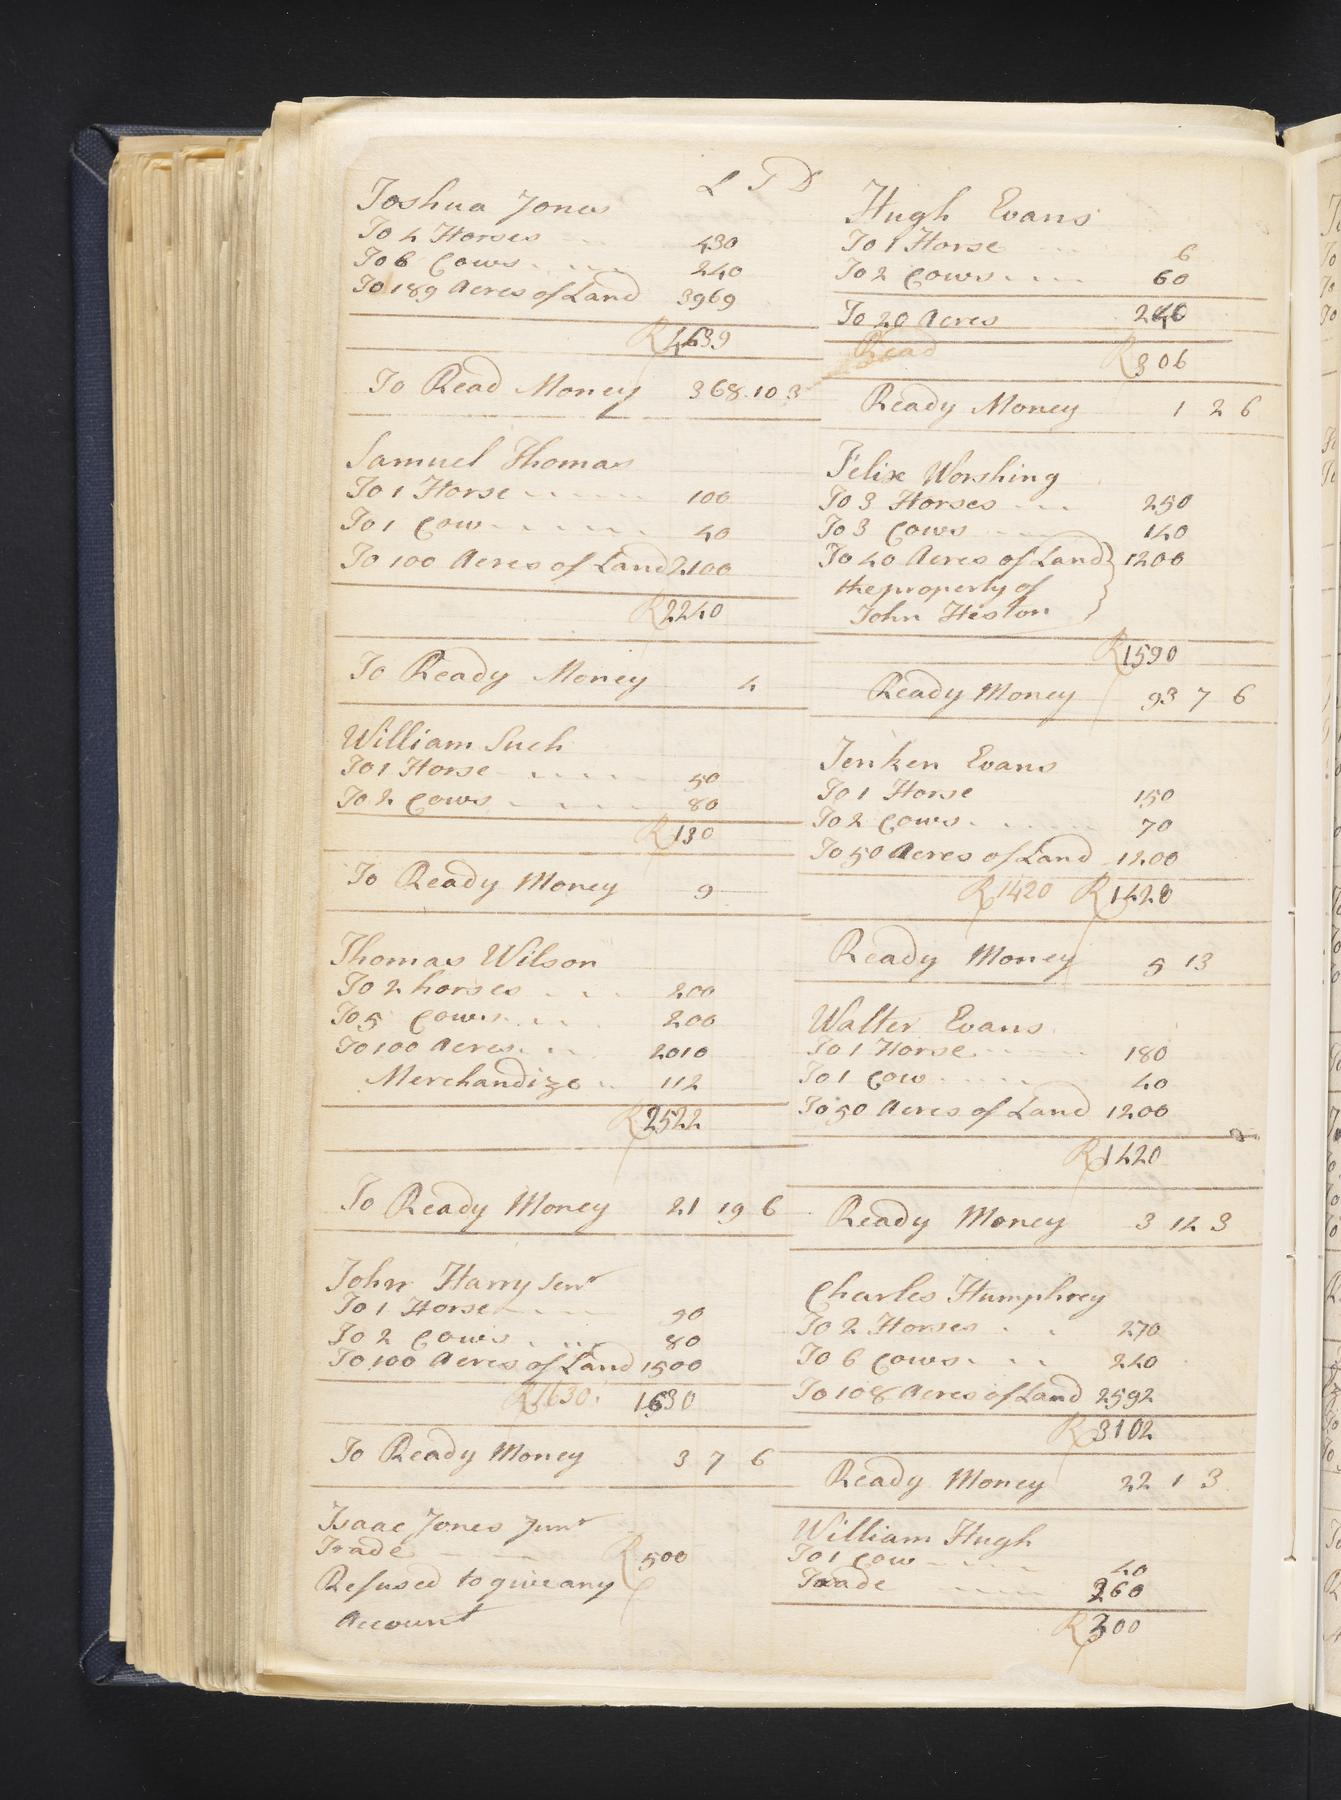 L S D
Joshua Jones
To 4 Horses 430
To 6 Cows 240
To 189 Acres of Land 3969
R 4639
To Read Money 368.10 3
Samuel Thomas
To 1 Horse 100
To 1 Cow 40
To 100 Acres of Land 2100
R 2240
To Ready Money 4
William Such
To 1 Horse 50
To 2 Cows 80
R 130
To Ready Money 9
Thomas Wilson
To 2 horses 200
To 5 Cows 200
To 100 Acres 2010
Merchandize 112
R 2522
To Ready Money 21 19 6
John Harry Senr
To 1 Horse 50
To 2 Cows 80
To 100 Acres of Land 1500
R 1630. 1630
To Ready Money 3 7 6
Isaac Jones Junr
Trade R 500
Refused to give any
Account
Hugh Evans
To 1 Horse 6
To 2 Cows 60
To 20 Acres 240
Read R 306
Ready Money 1 2 6
Felix Worshing
To 3 Horses 250
To 3 Cows 140
To 40 Acres of Land 1200
the property of
John Heston
R 1590
Ready Money 93 7 6
Jenken Evans
To 1 Horse 150
To 2 Cows 70
To 50 Acres of Land 1200
R 1420 R 1420
Ready Money 5 13
Walter Evans
To 1 Horse 180
To 1 Cow 40
To 50 Acres of Land 1200
R 1420
Ready Money 3 12 3
Charles Humphrey
To 2 Horses 270
To 6 Cows 240
To 108 Acres of Land 2592
R 3102
Ready Money 22 1 3
William Hugh
To 1 Cow 40
Trade 260
R 300